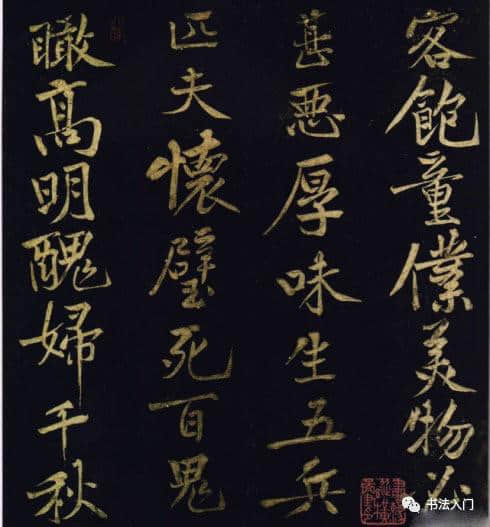 客飽童僕美物必
甚惡厚味生五兵
匹夫懷璧死百鬼
瞰高明醜婦千秋
书法入门